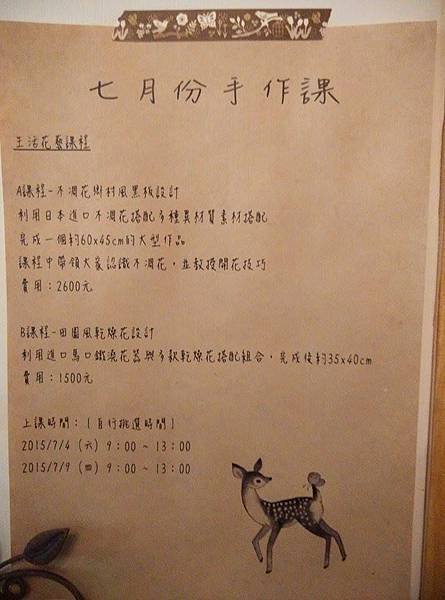 七月份手作課
生活花藝課程
A課程-不凋花鄉村風黑板設計
利用日本進口不凋花搭配多種異材質素材搭配
完成一個約60x45cm的大型作品
課程中帶領大家認識不凋花，並教授開花技巧
費用：2600元
B課程-田園風乾燥花設計
利用進口馬口鐵澆花器與多款乾燥花搭配組合，完成後約35x40cm
費用：1500元
上課時間：[自行挑選時間]
2015/7/4 (六) 9：00 ~ 13：00
2015/7/9 (四) 9：00 ~ 13：00